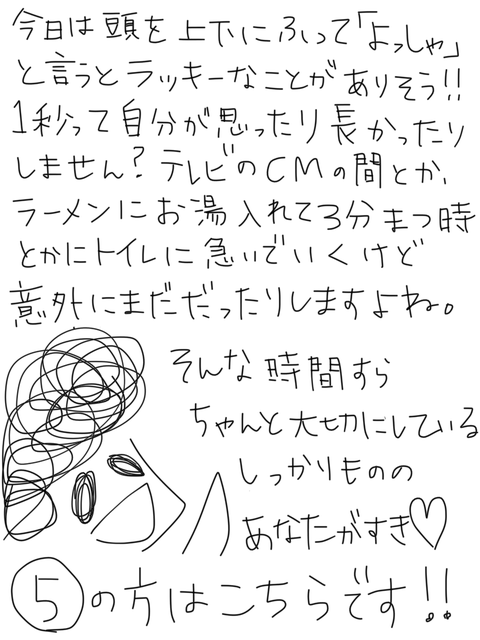 今日は頭を上下にふって「よっしゃ」
と言うとラッキーなことがありそう!!
1秒って自分が思ったり長かったり
しません?テレビのCMの間とか、
ラーメンにお湯入れて3分まつ時
とかにトイレに急いでいくけど
意外にまだだったりしますよね。
そんな時間すら
ちゃんと大切にしている
しっかりものの
あなたがすき♡
⑤の方はこちらです!!